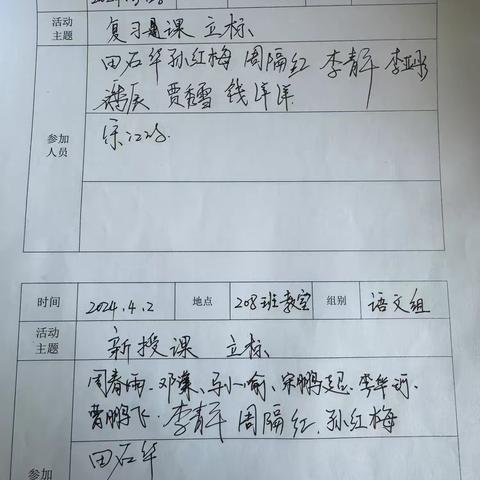 活动主题 复习课 立标
田石华 孙红梅 周隔红 李青平
贾香雪 钱洋洋
参加人员
时间 2024.4.2 地点 208班教室 组别 语文组
活动主题 新授课 立标
周春雨、邓 马小喻、宋鹏 李华
曹鹏飞、李青平 周隔红、孙红梅
参加 田石华